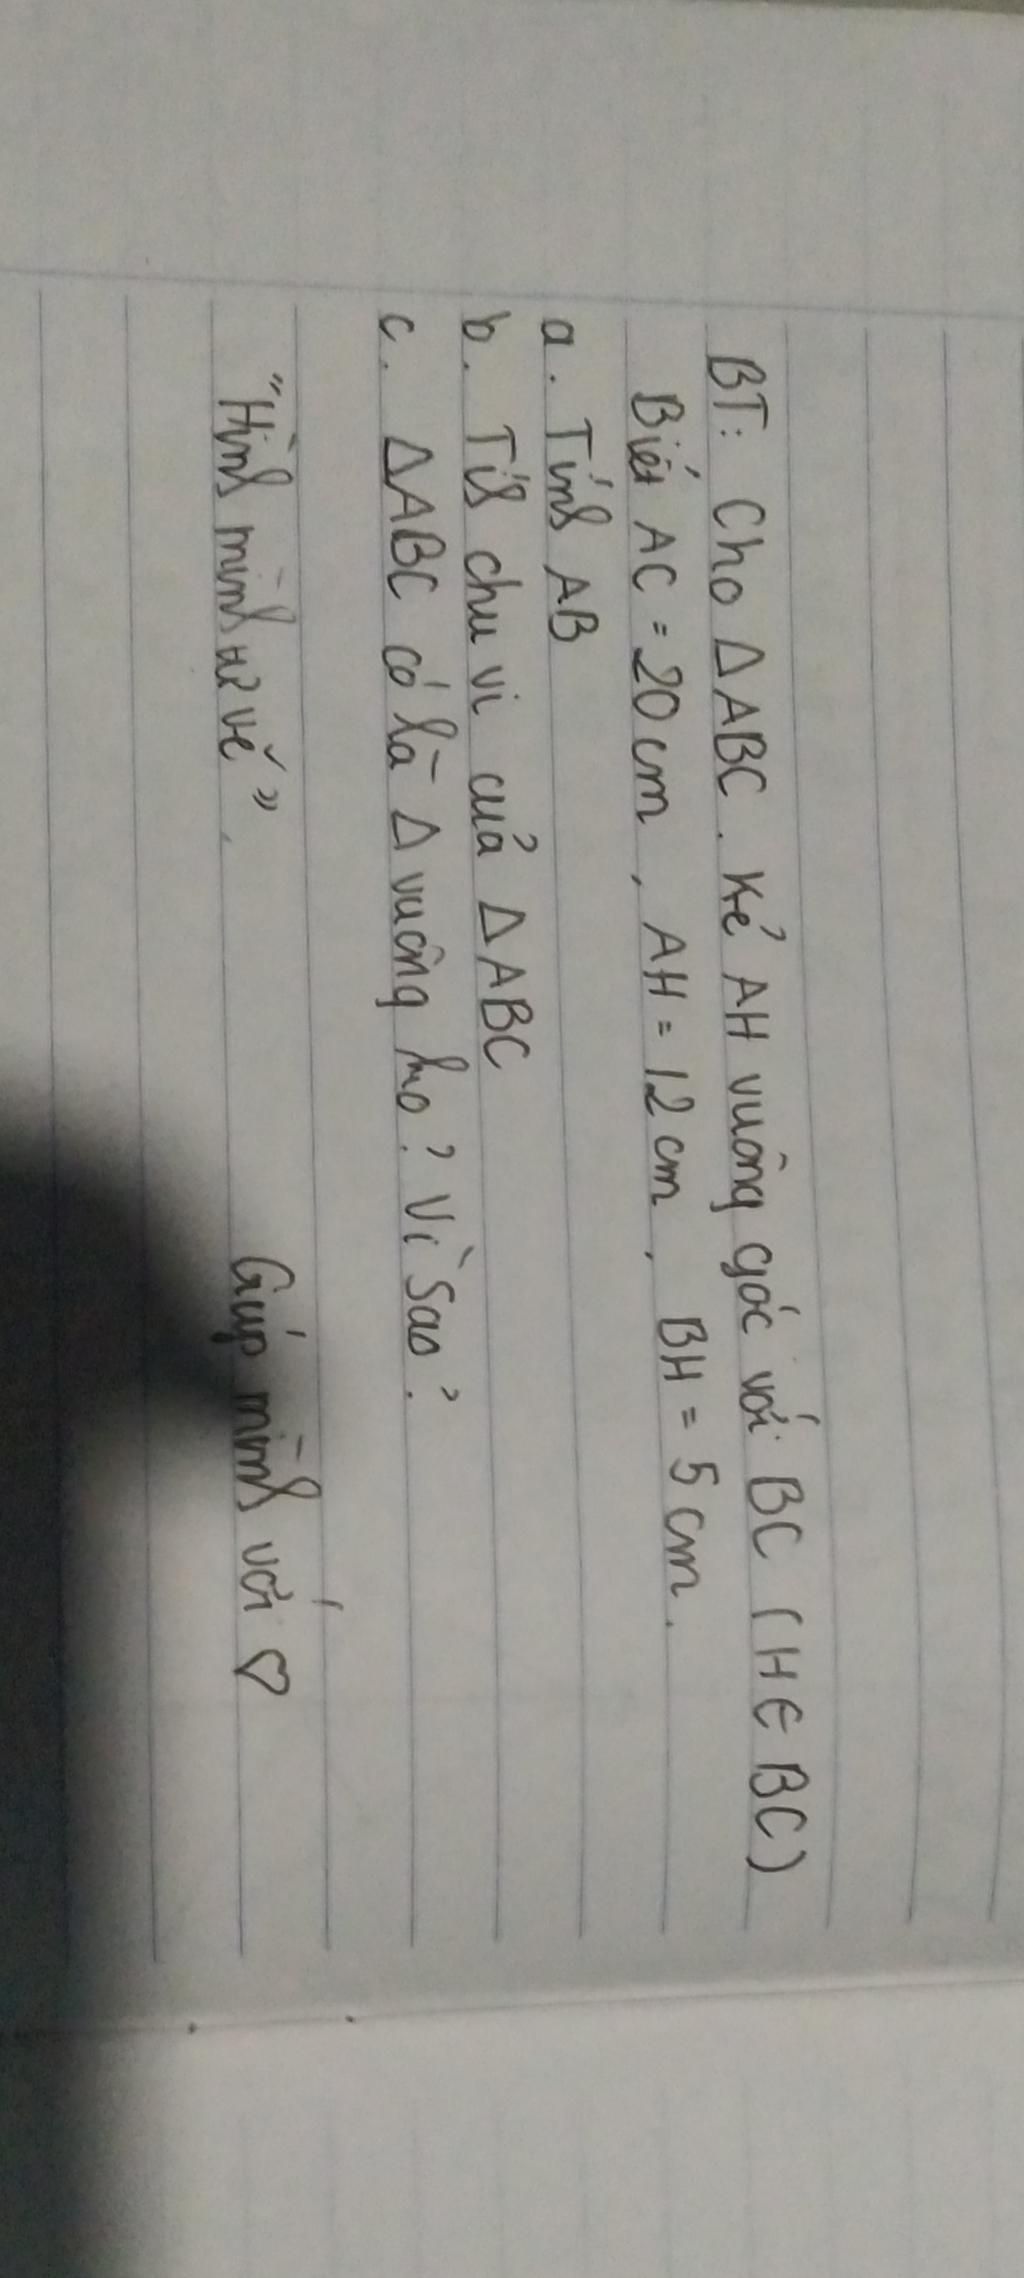 BT: Cho ΔABC. Kẻ AH vuông góc với BC (H∈BC)
Biết AC = 20cm, AH = 12cm, BH = 5cm.
a. Tính AB
b. Tíh chu vi của ΔABC
c. ΔABC có là Δ vuông ko? Vì sao?
"Hình mình tự vẽ". Giúp mình với ♡